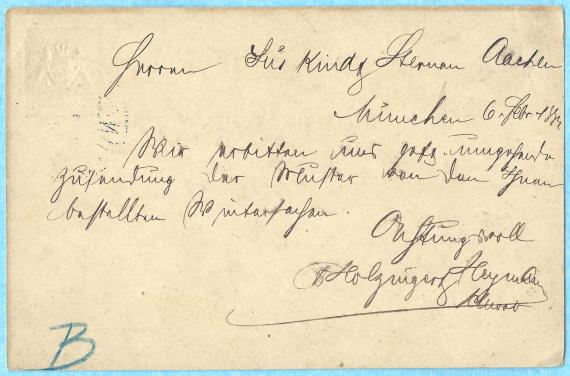 Herren Süs Kind & Sternau Aachen
München 6. Febr. 188
Wir erbitten uns gefl. umgehende
Zusendung der Muster von den Ihnen
bestellten Wintersachen.
Achtungsvoll
Holzinger & Heyman
B